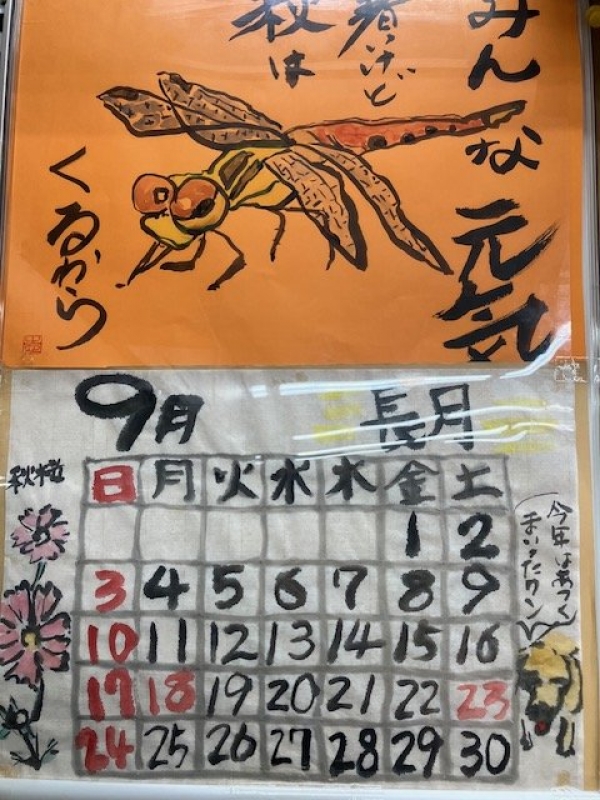 みんな元気
暑いけど
秋は
くるから
9月
長月
秋桜
日 月 火 水 木 金 土
1 2
3 4 5 6 7 8 9
10 11 12 13 14 15 16
17 18 19 20 21 22 23
24 25 26 27 28 29 30
今年はあつくて
まいったワン